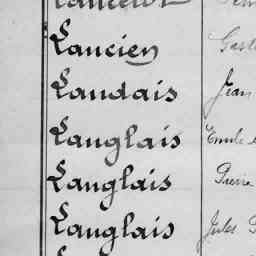 Lancelot
Lancien Gast
Landais Jean
Langlais Emile
Langlais Pierre
Langlais Jules